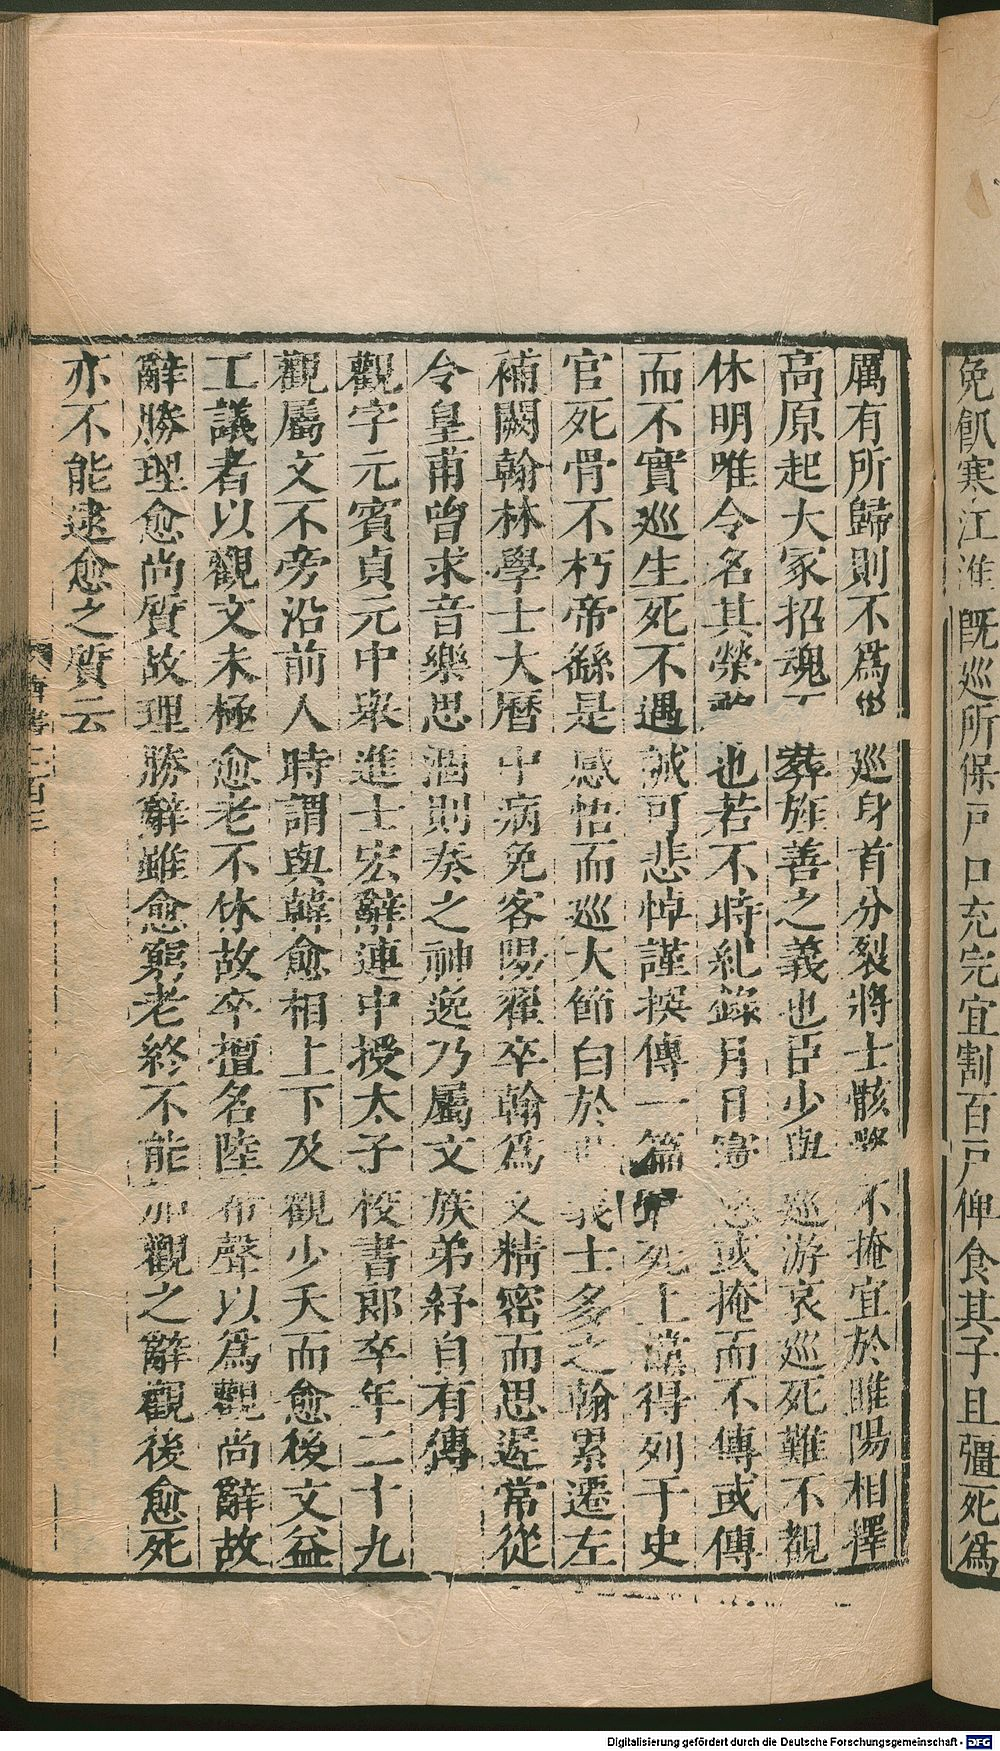 免飢寒江淮既巡所保戶口充完宜割百戶俾食其子且彊死爲
厲有所歸則不爲巡身首分裂將士骸不掩宜於睢陽相擇
高原起大冢招魂而葬旌善之義也臣少與巡游哀巡死難不覩
休明唯令名其榮也若不時紀錄月日寖悠或掩而不傳或傳
而不實巡生死不遇誠可悲悼謹撰傳一篇昧死上儻得列于史
官死骨不朽帝繇是感悟而巡大節白於義士多之翰累遷左
補闕翰林學士大曆中病免客陽翟卒翰爲文精密而思遲常從
令皇甫曾求音樂思涸則奏之神逸乃屬文族弟紓自有傳
觀字元賓貞元中舉進士宏辭連中授太子校書郎卒年二十九
觀屬文不旁沿前人時謂與韓愈相上下及觀少夭而愈後文益
工議者以觀文未極愈老不休故卒擅名陸希聲以爲觀尚辭故
辭勝理愈尚質故理勝辭雖愈窮老終不能加觀之辭觀後愈死
亦不能逮愈之質云
Digitalisierung gefördert durch die Deutsche Forschungsgemeinschaft - DFG